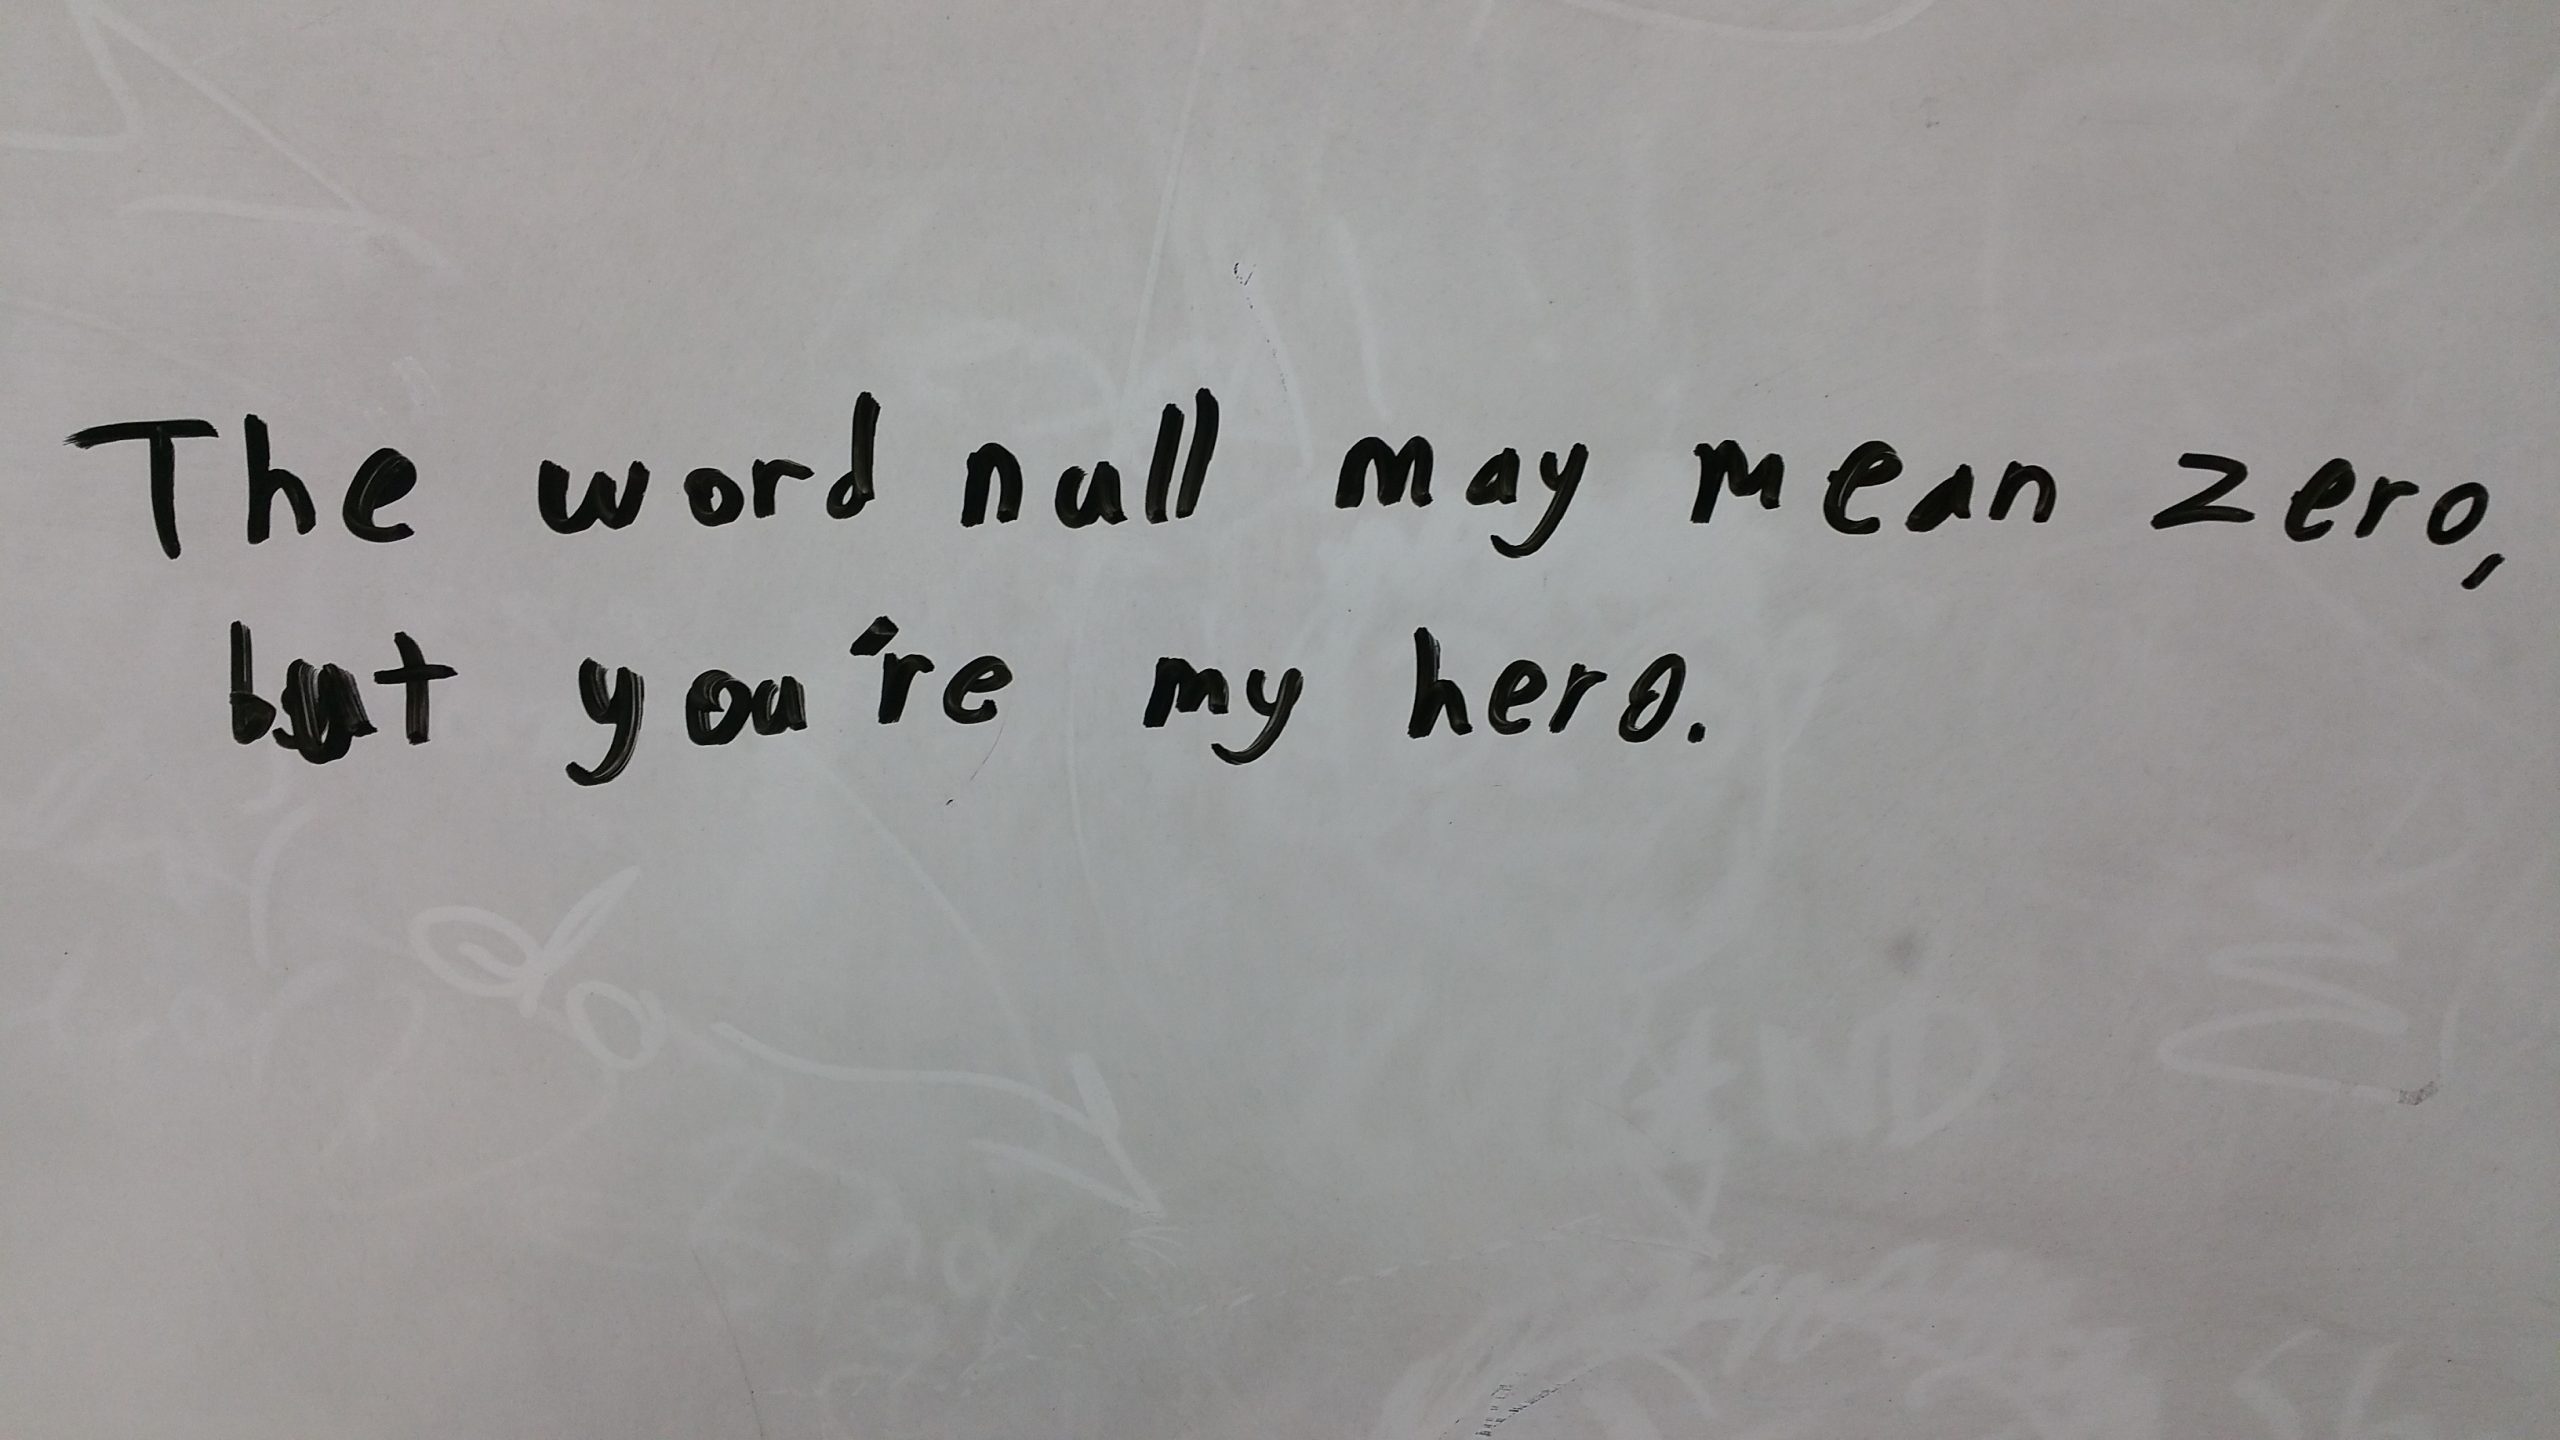 The word null may mean zero,
but you're my hero.